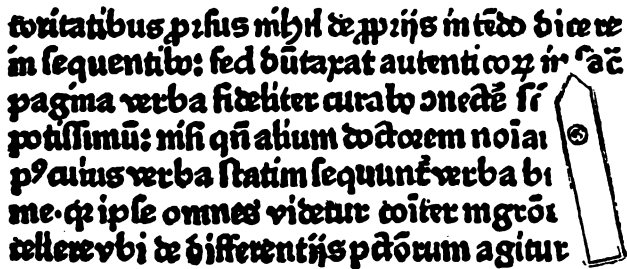 toritatibus prſus nihil de ꝓprijs intēdo dicere
in ſequentibꝰ: ſed dūtaxat autenticoꝝ in ſac̄
pagina verba fideliter curabo ꝯnectē
potiſſimū: niſi qn̄ alium doctorem
pꝰ cuius verba ſtatim ſequunt̄ verba
me. Qꝛ ipſe omnes videtur coīter mgrōs
cellere vbi de differentijs pctōrum agitur